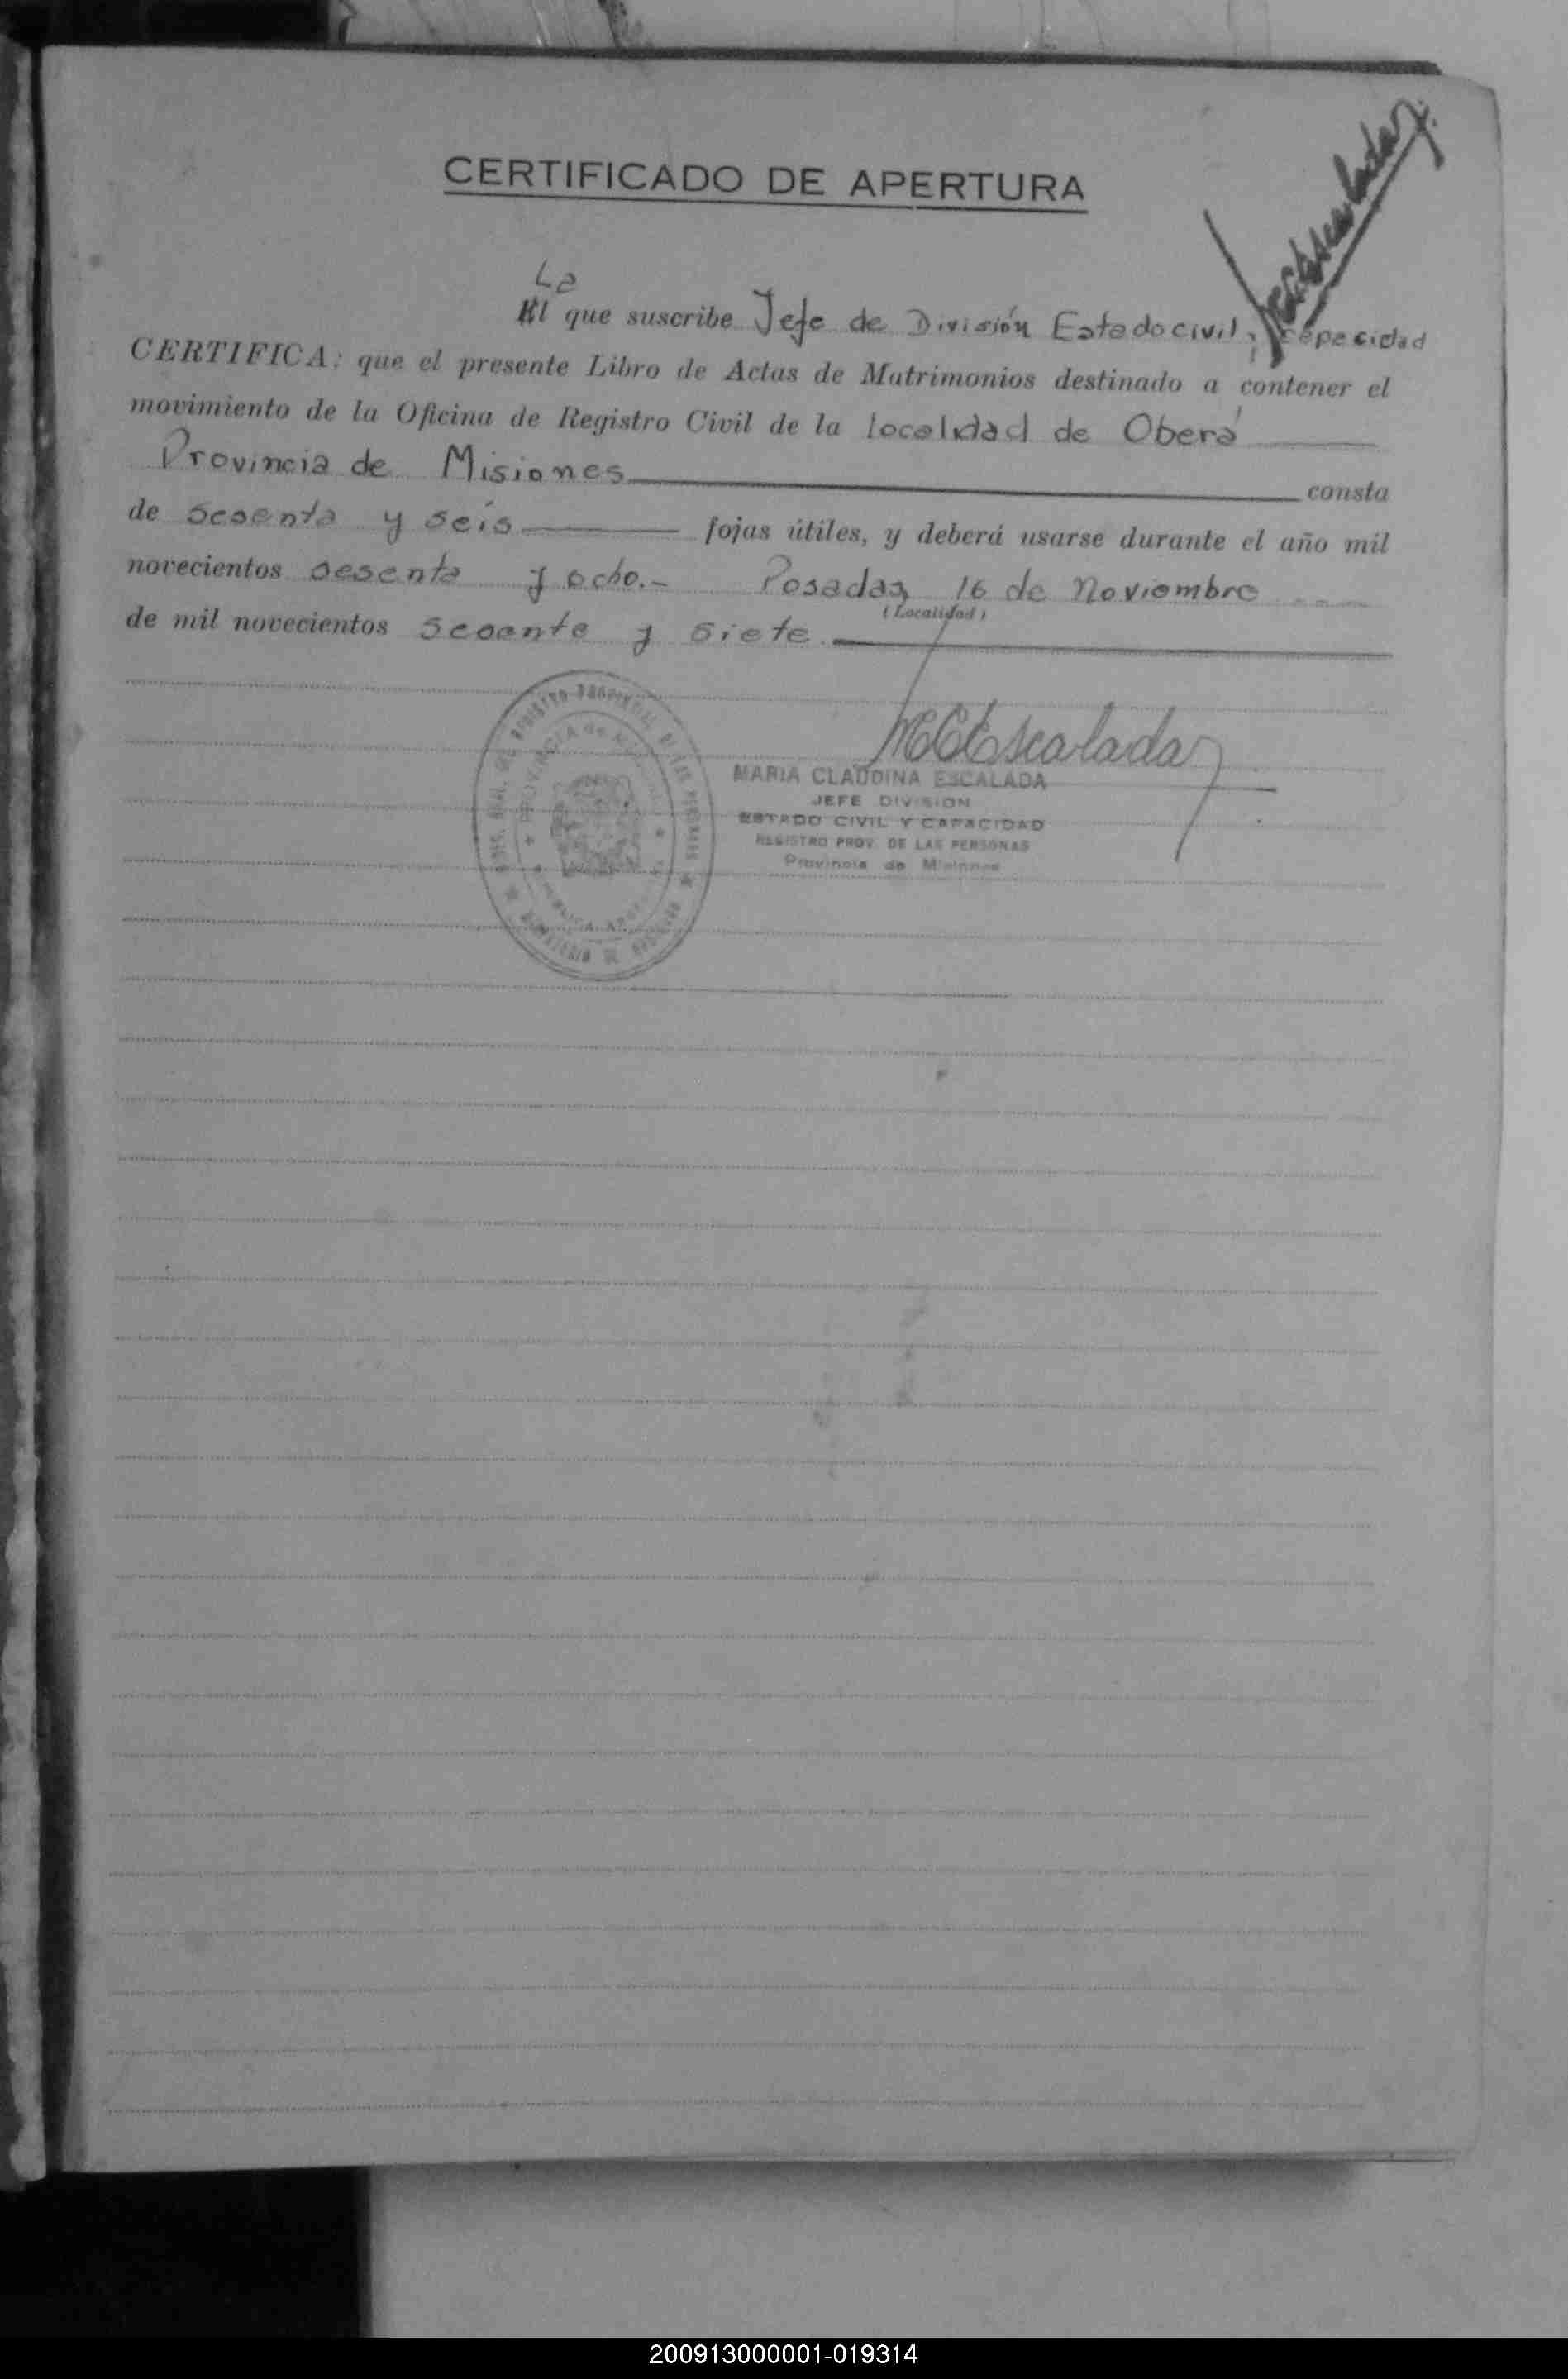 CERTIFICADO DE APERTURA
MCEscalada
La
El que suscribe Jefe de División Estado civil y capacidad
CERTIFICA: que el presente Libro de Actas de Matrimonios destinado a contener el
movimiento de la Oficina de Registro Civil de la localidad de Oberá
Provincia de Misiones consta
de sesenta y seis fojas útiles, y deberá usarse durante el año mil
novecientos sesenta y ocho.- Posadas, 16 de Noviembre
(Localidad)
de mil novecientos sesenta y siete
MCEscalada
MARIA CLAUDINA ESCALADA
JEFE DIVISION
ESTADO CIVIL Y CAPACIDAD
REGISTRO PROV. DE LAS PERSONAS
Provincia de Misiones
REGISTRO PROVINCIAL DE LAS PERSONAS
PROVINCIA de
200913000001-019314